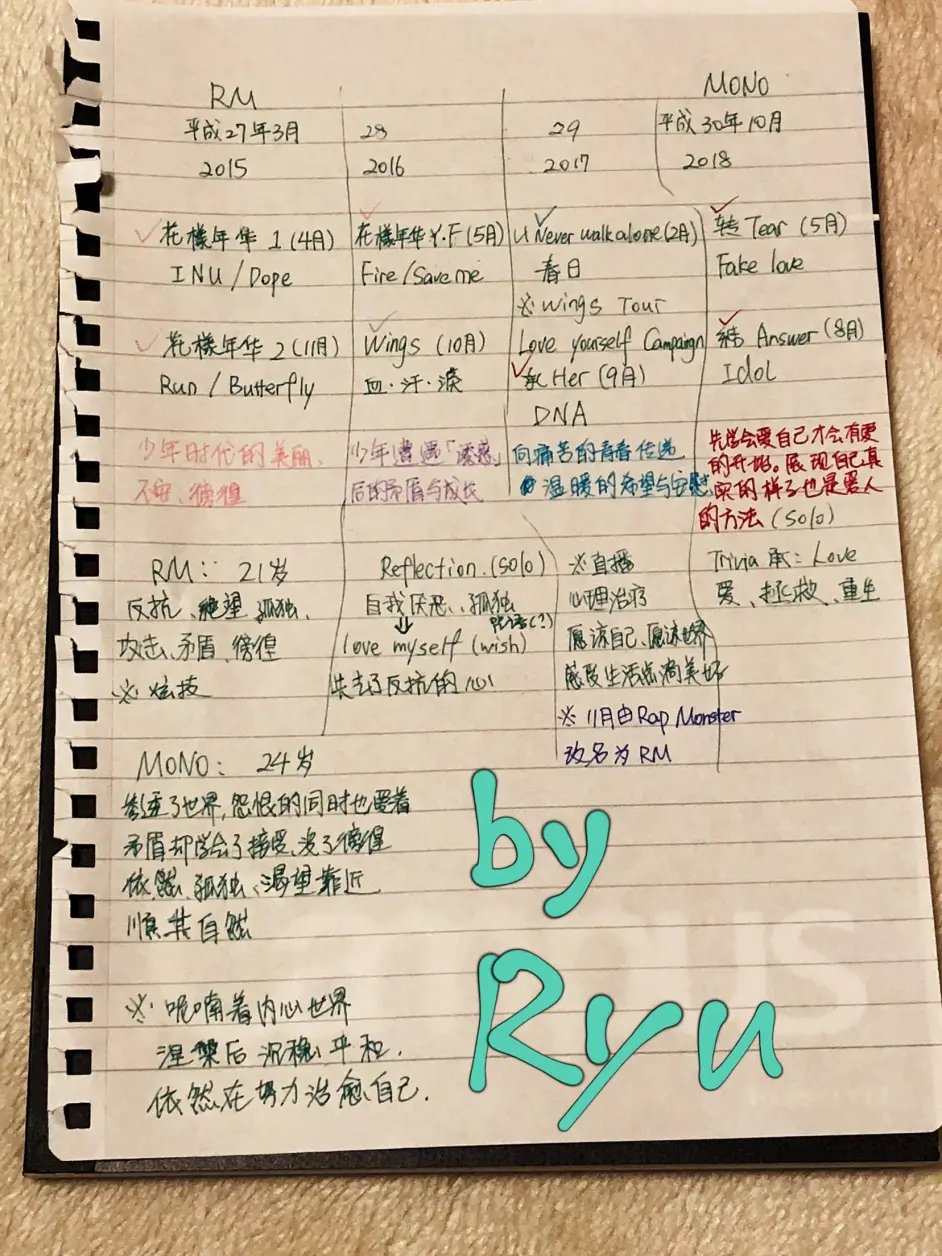 RM MONO
平成27年3月 28 29 平成30年10月
2015 2016 2017 2018
花樣年华1(4月) 花樣年华Y.F(5月) U Never walk alone(2月) 转Tear(5月)
INU/Dope Fire/Save me 春日 Fake love
※Wings Tour
花樣年华2(11月) Wings(10月) Love yourself Campaign 結Answer(8月)
Run/Butterfly 血·汗·淚 承Her(9月) Idol
DNA
少年时代的美丽、 少年遭遇「诱惑」 向痛苦的青春传递 先学会爱自己才会有更
不安、彷徨 后的矛盾与成长 温暖的希望与安慰 的开始。展现自己真
实的样子也是爱人
的方法(solo)
RM: 21岁 Reflection.(solo) ※直播 Trivia 承:Love
反抗、绝望、孤独、 自我厌恶、孤独 心理治疗 爱、拯救、重生
攻击、矛盾、彷徨 love myself(wish) (?) 愿谅自己、愿谅世界
※炫技 失去了反抗的心 感受生活点滴美好
※11月由Rap Monster
改名为RM
MONO: 24岁
参透了世界,怨恨的同时也爱着
矛盾却学会了接受、没了彷徨
依然、孤独、渴望靠近
顺其自然
※呢喃着内心世界
涅槃后沉稳、平和.
依然在努力治愈自己.
by
Ryu